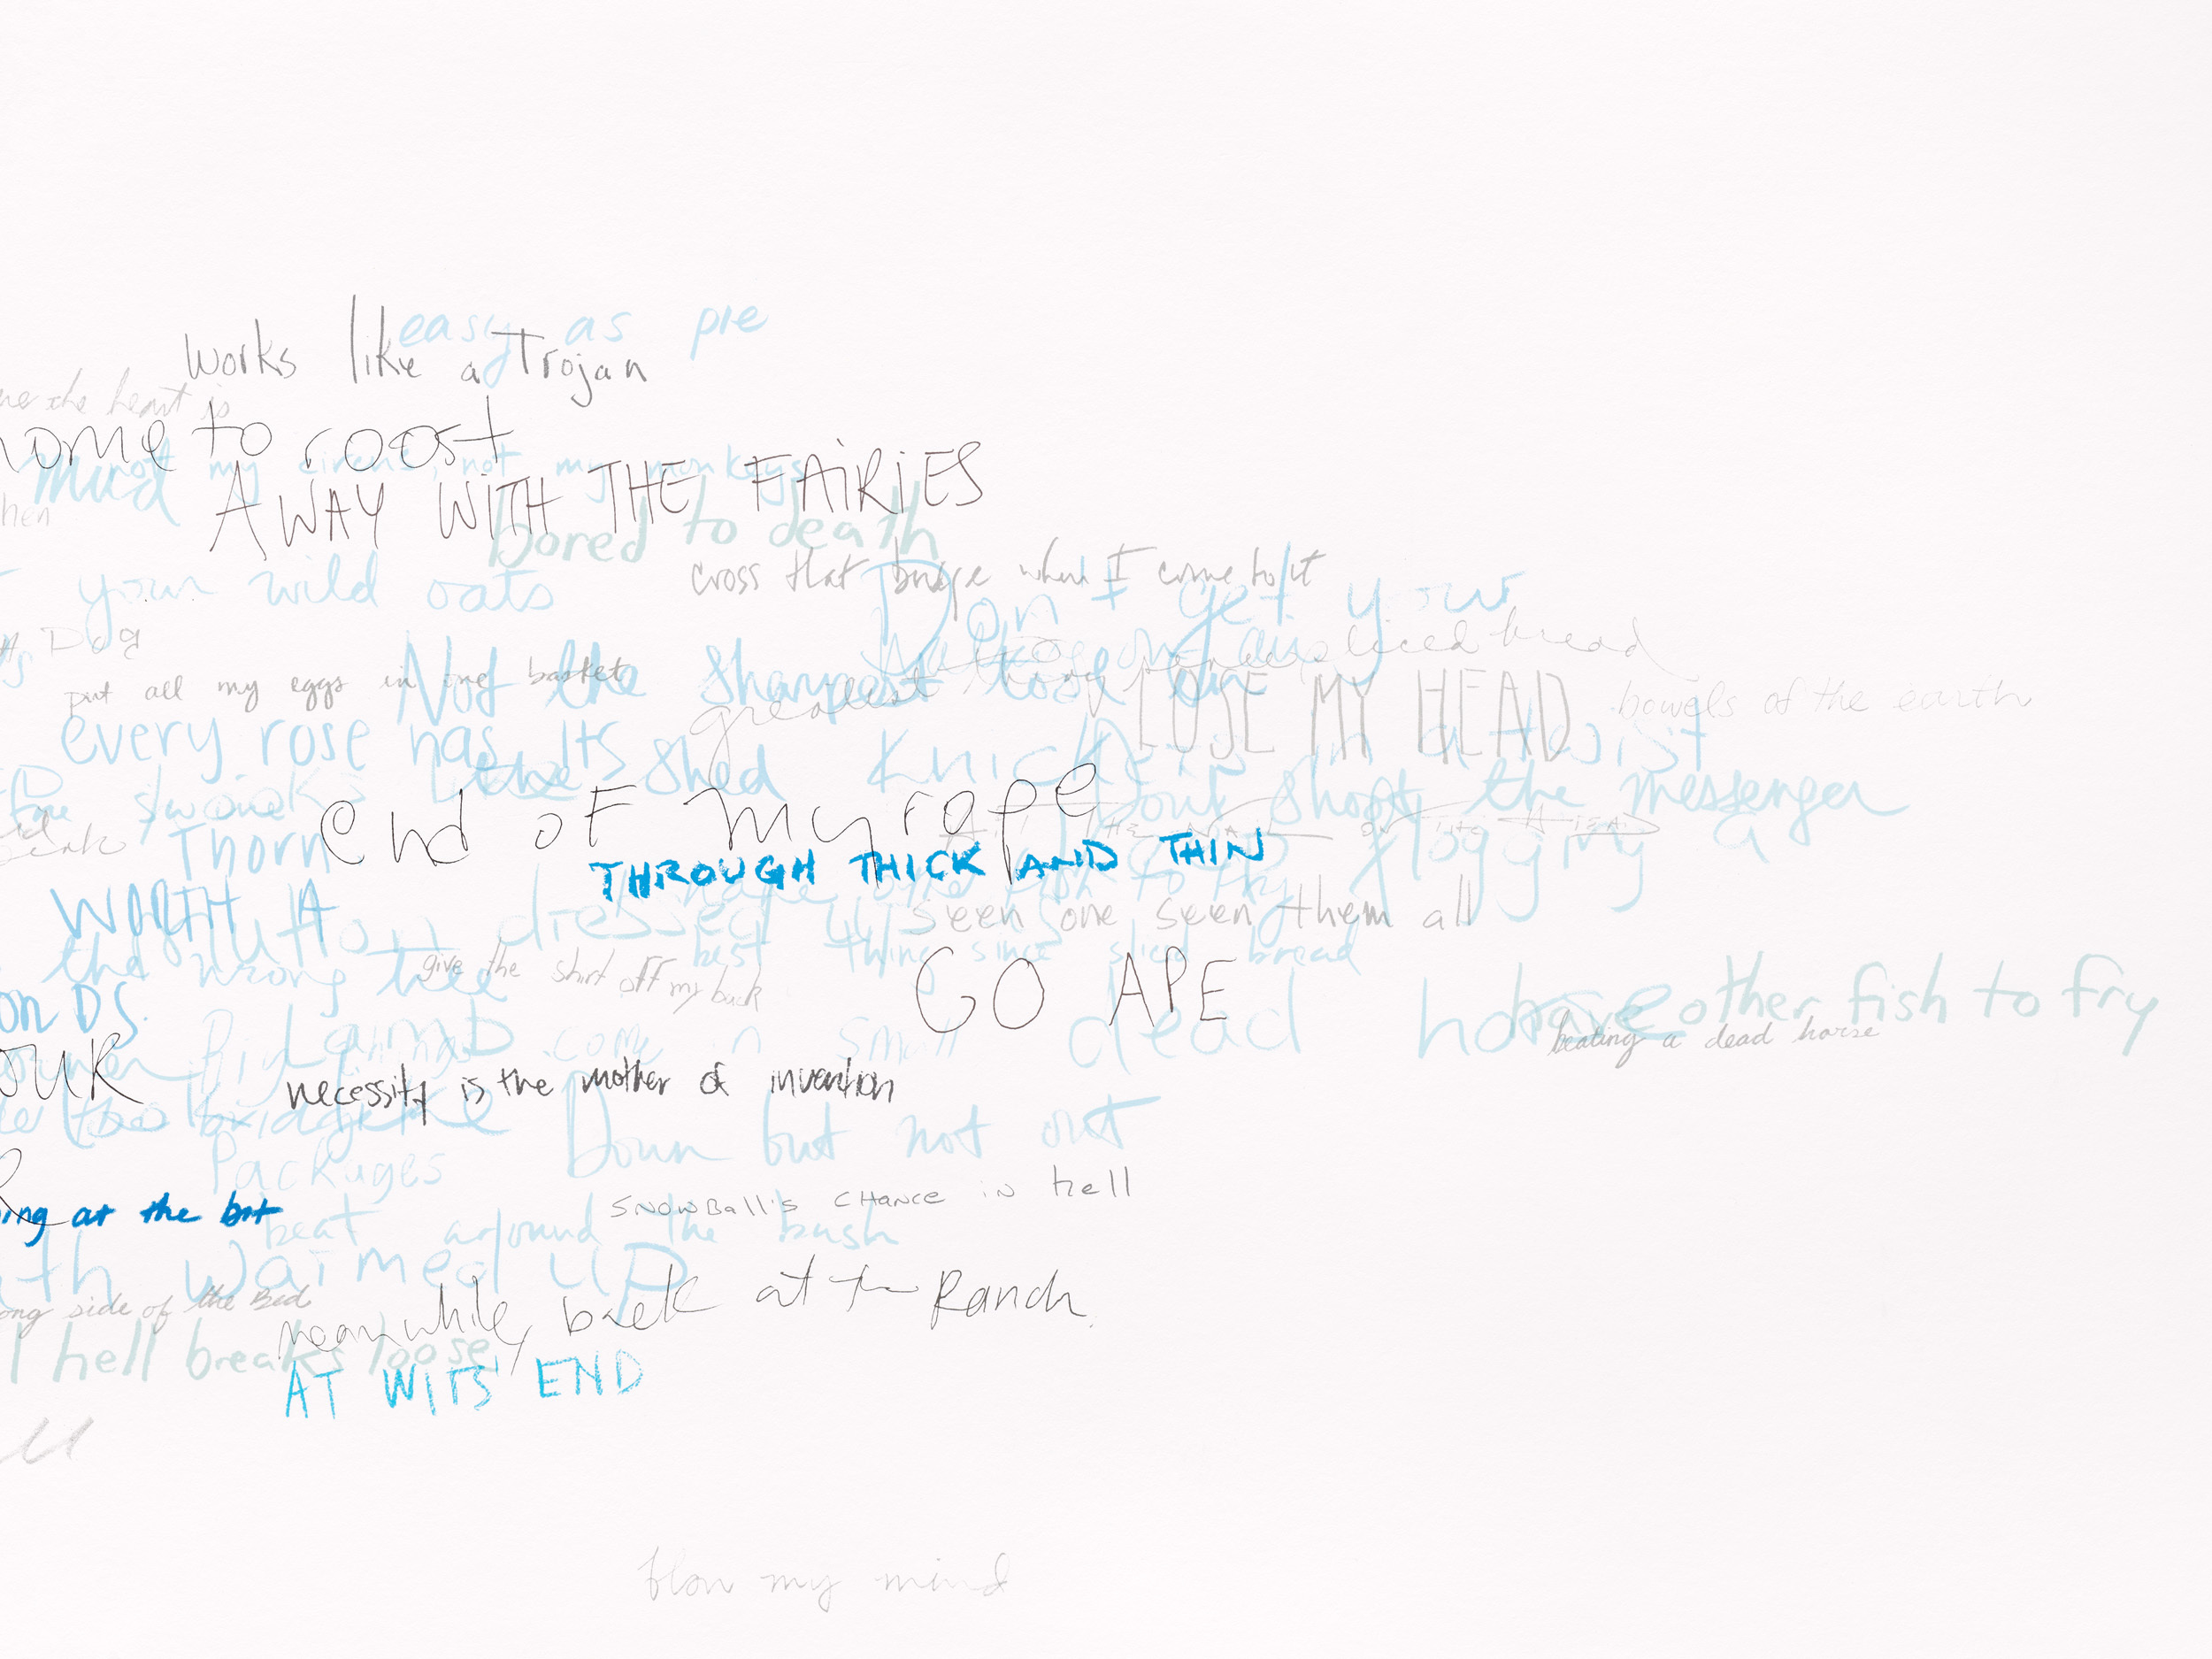 easy as pie
works like a Trojan
the heart is
home to roost
not my circus, not my monkeys
mind
AWAY WITH THE FAIRIES
bored to death
cross that bridge when I come to it
your wild oats
Don't get your
A Dog
greatest thing since sliced bread
put all my eggs in one basket
Not the sharpest tool in
the shed
LOSE MY HEAD
bowels of the earth
every rose has its
Thorn
Knickers in a twist
Don't shoot the messenger
end of my rope
HIT THE NAIL ON THE HEAD
THROUGH THICK AND THIN
flogging a
dead horse
WORTH A
seen one seen them all
mutton dressed up
Lamb
best thing since sliced bread
the wrong tree
give the shirt off my back
GO APE
have other fish to fry
beating a dead horse
come in small
Packages
necessity is the mother of invention
the bridge
Down but not out
SNOWBall's CHANCE iN hell
at the bit
beat around the bush
warmed up
side of the Bed
meanwhile, back at the Ranch.
hell breaks loose
AT WITS' END
blow my mind